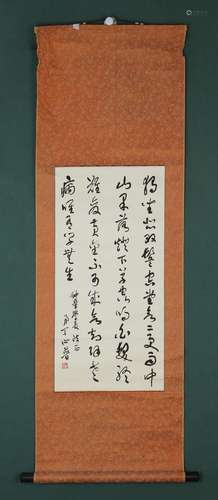 獨坐悲雙鬢空堂欲二更雨中
山果落燈下草蟲鳴白髮終
難變黃金不可成欲知除老
病唯有學無生